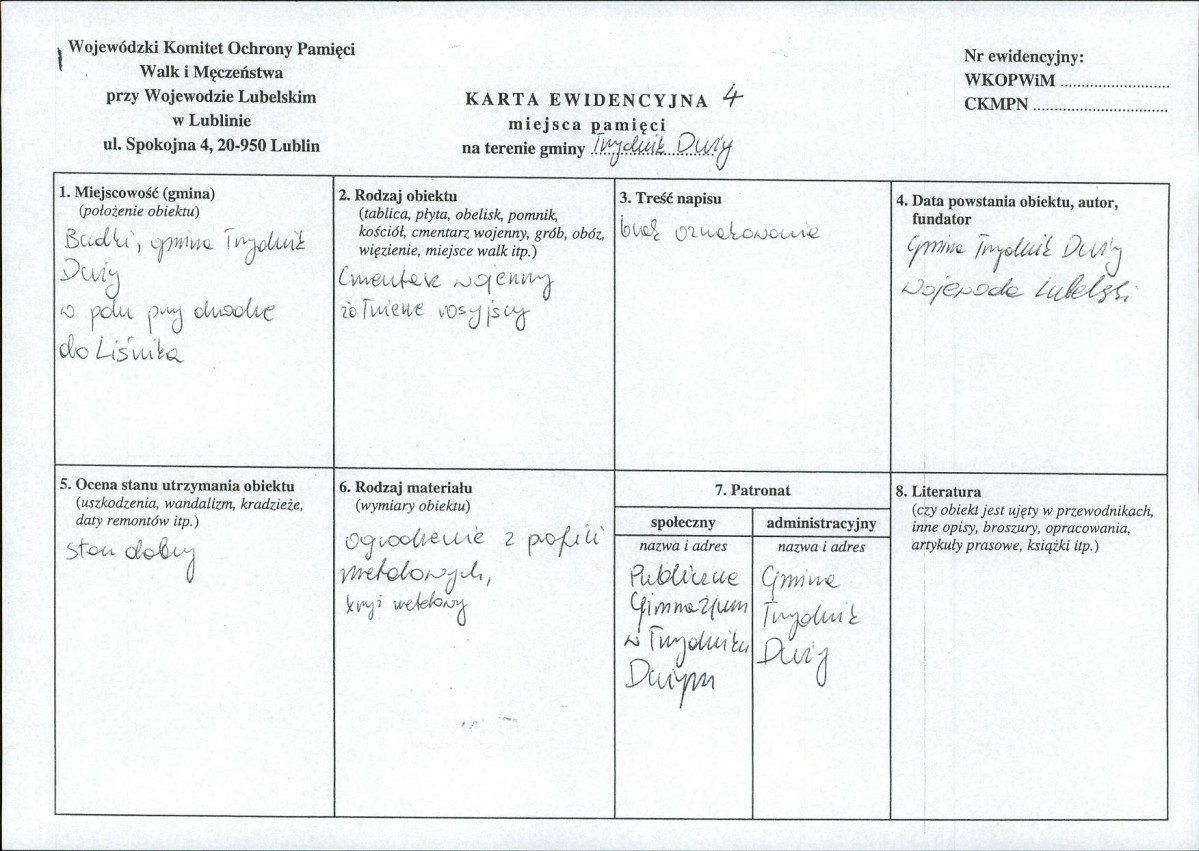 Wojewódzki Komitet Ochrony Pamięci
Walk i Męczeństwa
przy Wojewodzie Lubelskim
w Lublinie
ul. Spokojna 4, 20-950 Lublin
KARTA EWIDENCYJNA 4
miejsca pamięci
na terenie gminy Trzydnik Duży
Nr ewidencyjny:
WKOPWiM ..........................
CKMPN ..........................
1. Miejscowość (gmina)
(położenie obiektu)
Budki, gmina Trzydnik
Duży
w polu przy drodze
do Liśnika
2. Rodzaj obiektu
(tablica, płyta, obelisk, pomnik,
kościół, cmentarz wojenny, grób, obóz,
więzienie, miejsce walk itp.)
Cmentarz wojenny
żołnierze rosyjscy
3. Treść napisu
brak oznakowania
4. Data powstania obiektu, autor,
fundator
Gmina Trzydnik Duży
Wojewoda Lubelski
5. Ocena stanu utrzymania obiektu
(uszkodzenia, wandalizm, kradzieże,
daty remontów itp.)
stan dobry
6. Rodzaj materiału
(wymiary obiektu)
Ogrodzenie z profili
metalowych,
krzyż metalowy
7. Patronat
społeczny
nazwa i adres
Publiczne
Gimnazjum
w Trzydniku
Dużym
administracyjny
nazwa i adres
Gmina
Trzydnik
Duży
8. Literatura
(czy obiekt jest ujęty w przewodnikach,
inne opisy, broszury, opracowania,
artykuły prasowe, książki itp.)